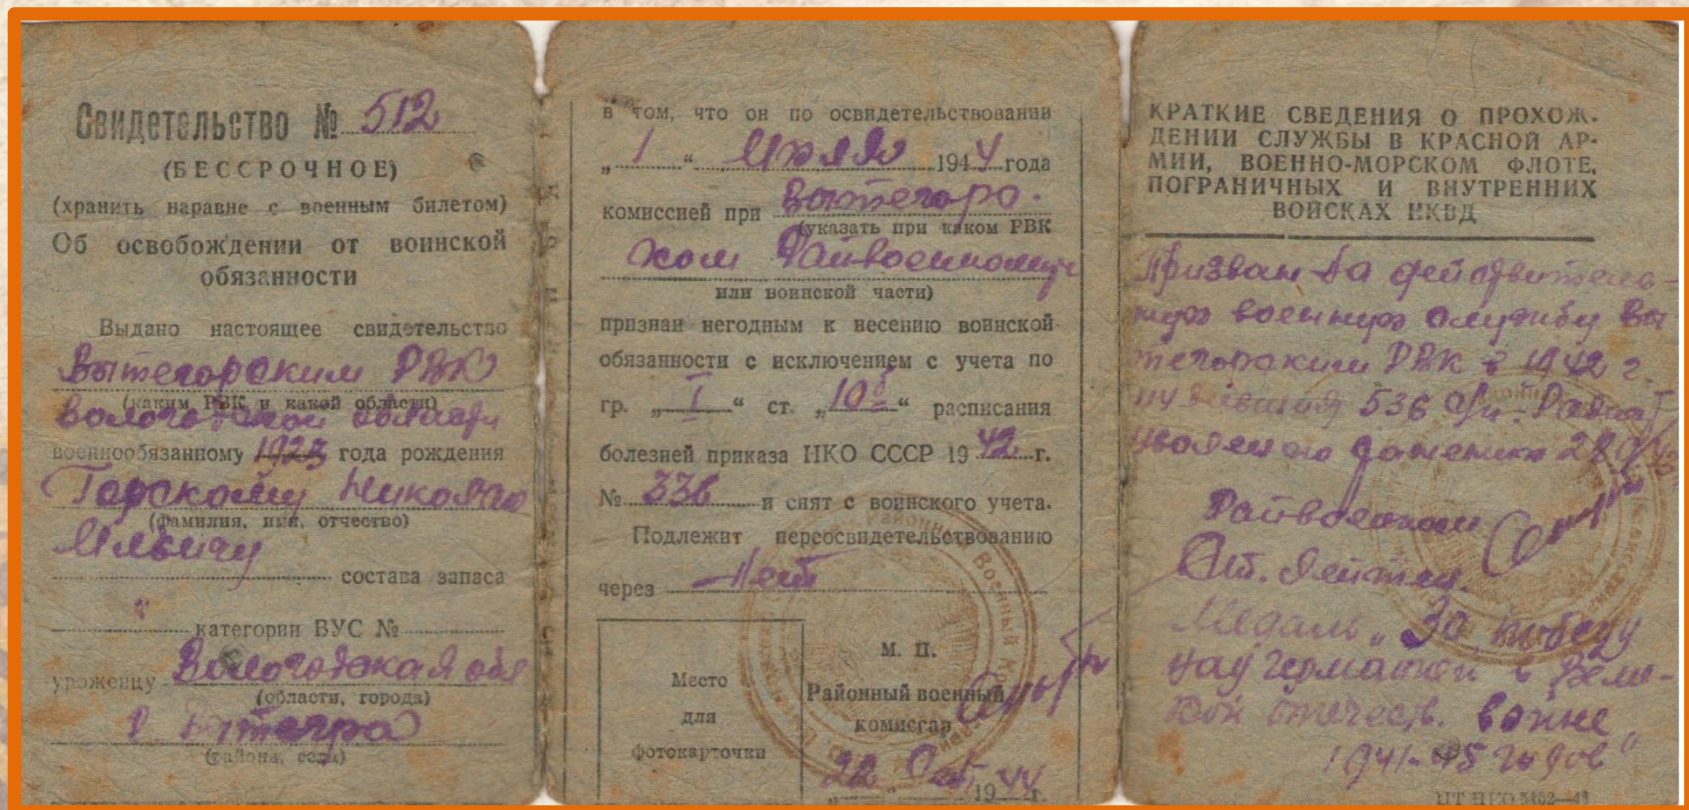 Свидетельство № 512
(БЕССРОЧНОЕ)
(хранить наравне с военным билетом)
Об освобождении от воинской
обязанности
Выдано настоящее свидетельство
Вытегорским РВК
(каким РВК и какой области)
Вологодской области
военнообязанному 1923 года рождения
Горскому Николаю
(фамилия, имя, отчество)
Ильичу
состава запаса
категории ВУС №
уроженцу Вологодская обл
(области, города)
(района, села)
в том, что он по освидетельствовании
„ 1 “ 1944 года
комиссией при Вытегорс-
(указать при каком РВК
ком Райвоенкомат
или воинской части)
признан негодным к несению воинской
обязанности с исключением с учета по
гр. „ I “ ст. „ 10б “ расписания
болезней приказа НКО СССР 19 42 г.
№ 336 и снят с воинского учета.
Подлежит переосвидетельствованию
через Нет
Место
для
фотокарточки
М. П.
Районный военный
комиссар
„ 22 “ 1944 г.
КРАТКИЕ СВЕДЕНИЯ О ПРОХОЖ-
ДЕНИИ СЛУЖБЫ В КРАСНОЙ АР-
МИИ, ВОЕННО-МОРСКОМ ФЛОТЕ,
ПОГРАНИЧНЫХ И ВНУТРЕННИХ
ВОЙСКАХ НКВД
Призван на действитель-
ную военную службу Вы
тегорским РВК в 1942 г.
536
Райвоенком
Ст. Лейтен.
Медаль „За победу
над Германией в Вели-
кой отечеств. войне
1941-45 годов“
ЦТ НКО 5152—43